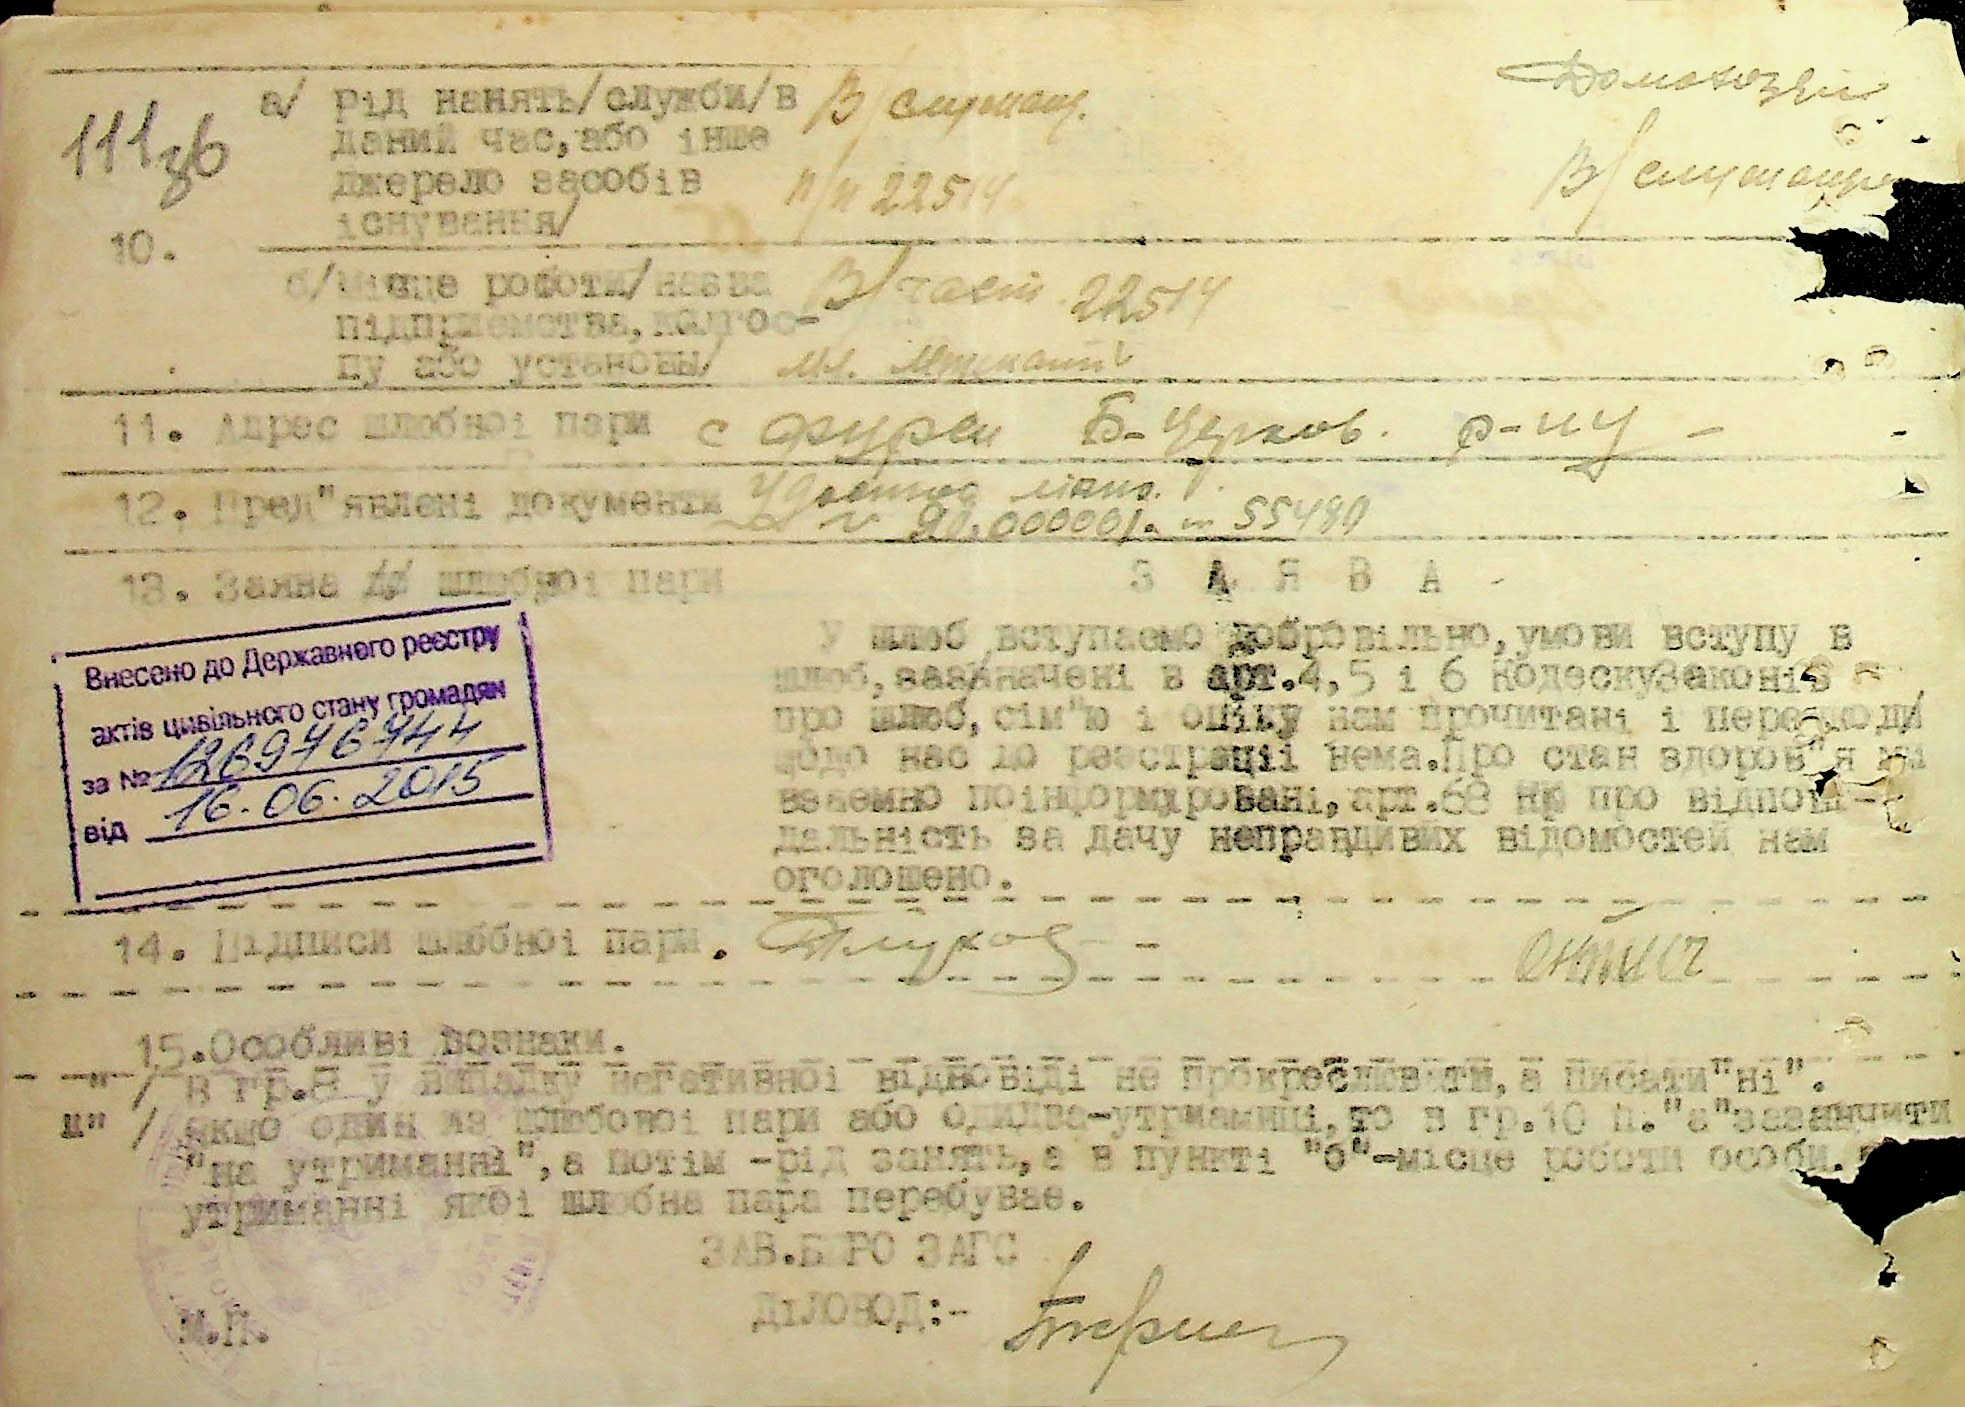 111зв
а/ рід нанять/служби/в В/служащ. Домохозяй
даний час, або інше
джерело засобів п/п 22514 В/служащ
існування/
10.
б/місце роботи/назва В/част. 22514
підприємства, колгос-
пу або установы/ мл.
11. Адрес шлюбної пари с Фурси Б-Церков. р-ну -
12. Пред"явлені документи
55480
13. Заява шлюбної пари З А Я В А -
Внесено до Державного реєстру
актів цивільного стану громадян
за № 126976744
від 16.06.2015
У шлюб вступаємо добровільно, умови вступу в
шлюб, зазначені в арт.4,5 і 6 КодескуЗаконів
про шлюб, сім"ю і опіку нам прочитані і перешкоди
щодо нас до реєстрації нема. Про стан здоров"я ми
взаємно поінформіровані, арт.68 КК про відпові-
дальність за дачу неправдивих відомостей нам
оголошено.
14. Підписи шлюбної пари. Глухов -
15. Особливі вознаки.
-"/ в гр.8 у випадку негативної відповіді не прокреслювати, а писати "ні".
"/ якщо один из шлюбової пари або -утрмамиці, то в гр.10 п."а"
"на утриманні", а потім -рід занять, а в пункті "б"-місце роботи особи.
утриманні якої шлюбна пара перебуває.
ЗАВ.БЮРО ЗАГС
ДІЛОВОД:-
М.П.